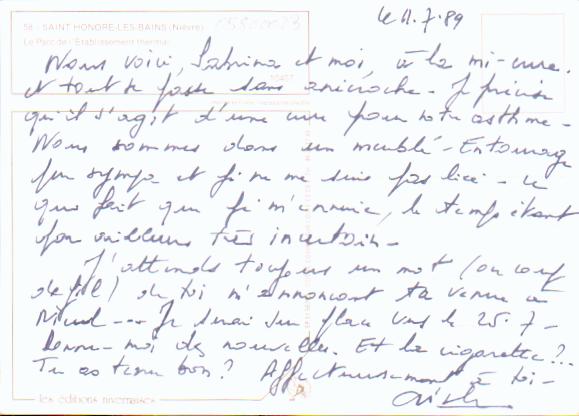 58 - SAINT HONORE-LES-BAINS (Nièvre)
Le Parc de l'Etablissement thermal
le 11.7.89
Nous voici, Sabrina et moi, à la mi-cure.
et tout se passe sans anicroche - Je précise
qu'il s'agit d'une cure pour notre asthme -
Nous sommes dans un meublé - Entourage
peu sympa et je ne me suis pas liée - ce
qui fait que je m'ennuie, le temps étant
par ailleurs très incertain -
J'attends toujours un mot (ou coup
de fil) de toi m'annonçant ta venue à
--- Je serai sur place vers le 25-7 -
Donne-moi des nouvelles. Et la cigarette ?..
Tu as tenu bon ? Affectueusement à toi -
les éditions nivernaises